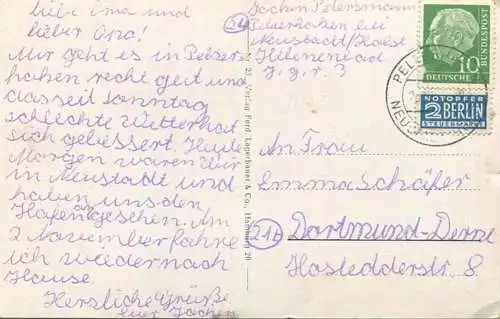 liebe Oma und
lieber Opa!
Mir geht es in Pelzer-
haken recht gut und
das seit sonntag
schlechte Wetter hat
sich gebessert. Heute
Morgen waren wir
in Neustadt und
haben uns den
Hafen angesehen. Am
2 November fahre
ich wieder nach
Hause.
Herzliche Grüße
euer Jochen
Nr. 25 Verlag Ferd. Lagerbauer & Co., Hamburg 20
24
Jochen Petersmann
Pelzerhaken bei
Neustadt/Holst
J.g.r. 3
DEUTSCHE BUNDESPOST
10
PELZ
NEUS
NOTOPFER
2 BERLIN
STEUERMARKE
An Frau
Emma Schäfer
21b Dortmund-Derne
Hostedderstr. 8